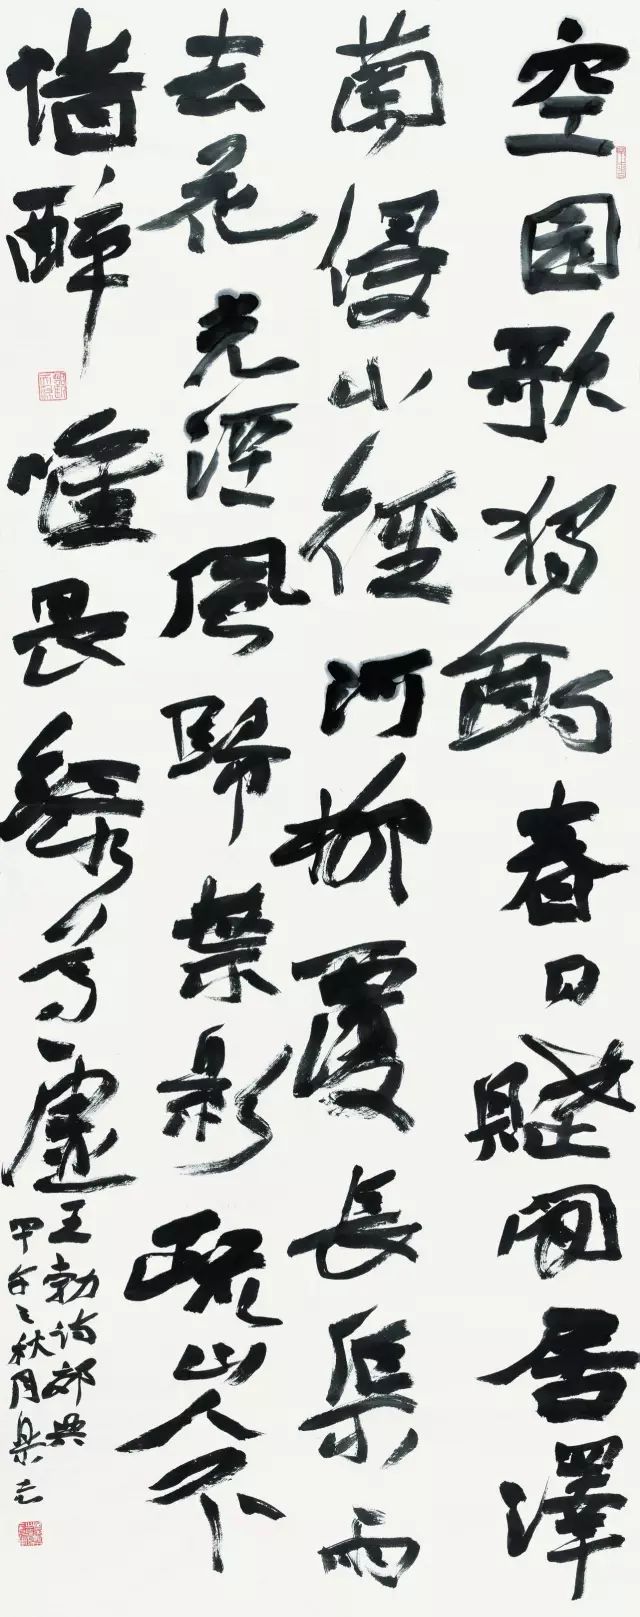 空園歌獨酌春日賦閒居澤
蘭侵小徑河柳覆長渠雨
去花光溼風歸葉影疏山人不
惜醉唯畏綠尊虛
王勃詩郊興
甲午之秋月